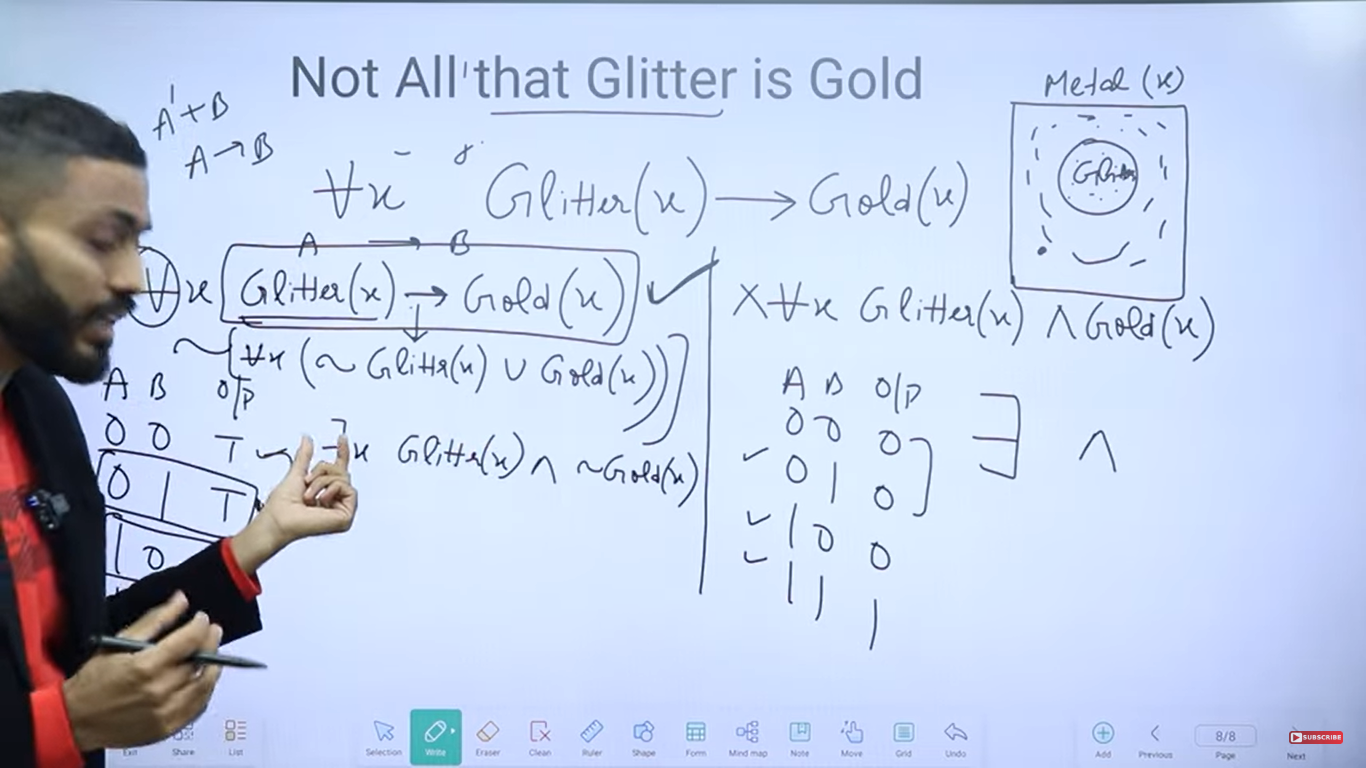 Not All that Glitter is Gold
A' + B
A → B
Metal (x)
Glitter
∀x Glitter(x) → Gold(x)
A → B
∀x Glitter(x) → Gold(x) ✓
X ∀x Glitter(x) ∧ Gold(x)
~[∀x (~Glittr(x) ∪ Gold(x))]
∃x Glitter(x) ∧ ~Gold(x)
A B O/P
0 0 T
0 1 T
1 0
A B O/P
0 0 0
0 1 0
1 0 0
1 1 1
∧
Exit
Share
List
Selection
Write
Eraser
Clean
Ruler
Shape
Form
Mind map
Note
Move
Grid
Undo
Add
Previous
8/8
Page
Next
SUBSCRIBE